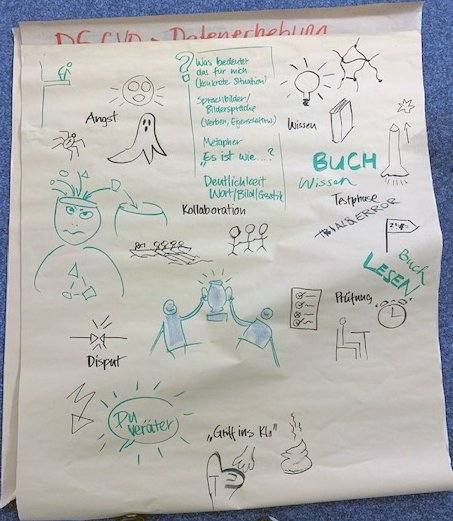 Datenerhebung
?
Was bedeutet
das für mich
(konkrete Situation)
Sprachbilder/
Bildersprache
(Verben, Eigenschaften)
Metapher
„Es ist wie....?
Deutlichkeit
Wort/Bild/Gestik
Angst
Wissen
BUCH
Wissen
Kollaboration
Testphase
TRIAL & ERROR
Buch
LESEN
Prüfung
Disput
Du
veräter
„Griff ins Klo"